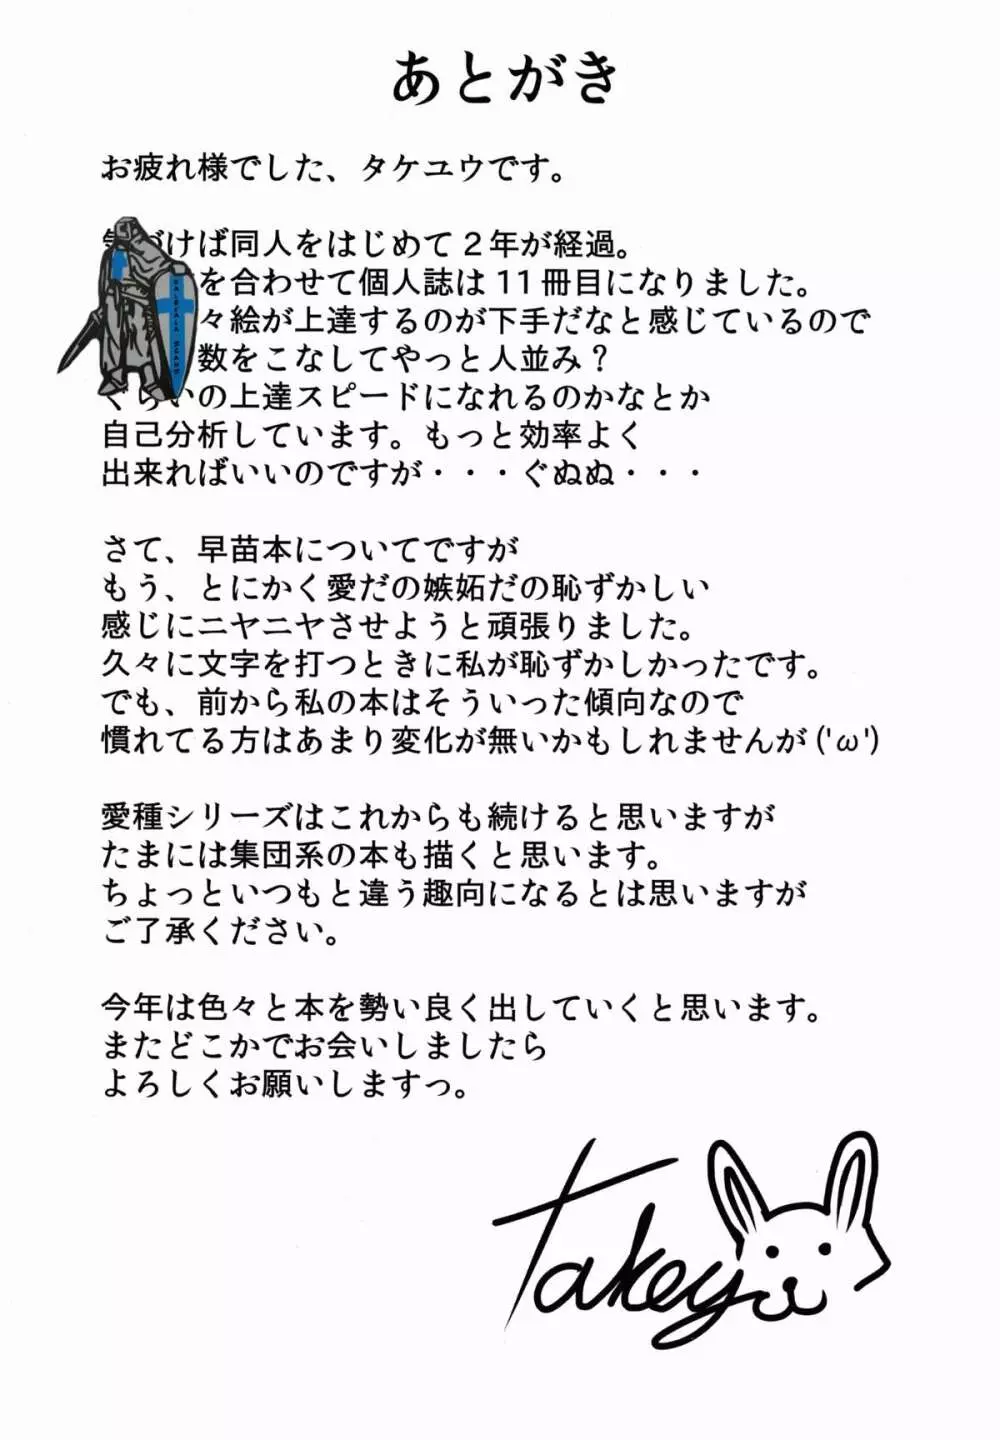 あとがき
お疲れ様でした、タケユウです。
づけば同人をはじめて２年が経過。
を合わせて個人誌は11冊目になりました。
々絵が上達するのが下手だなと感じているので
数をこなしてやっと人並み？
ぐらいの上達スピードになれるのかなとか
自己分析しています。もっと効率よく
出来ればいいのですが・・・ぐぬぬ・・・
さて、早苗本についてですが
もう、とにかく愛だの嫉妬だの恥ずかしい
感じにニヤニヤさせようと頑張りました。
久々に文字を打つときに私が恥ずかしかったです。
でも、前から私の本はそういった傾向なので
慣れてる方はあまり変化が無いかもしれませんが('ω')
愛種シリーズはこれからも続けると思いますが
たまには集団系の本も描くと思います。
ちょっといつもと違う趣向になるとは思いますが
ご了承ください。
今年は色々と本を勢い良く出していくと思います。
またどこかでお会いしましたら
よろしくお願いしますっ。
Takeyu